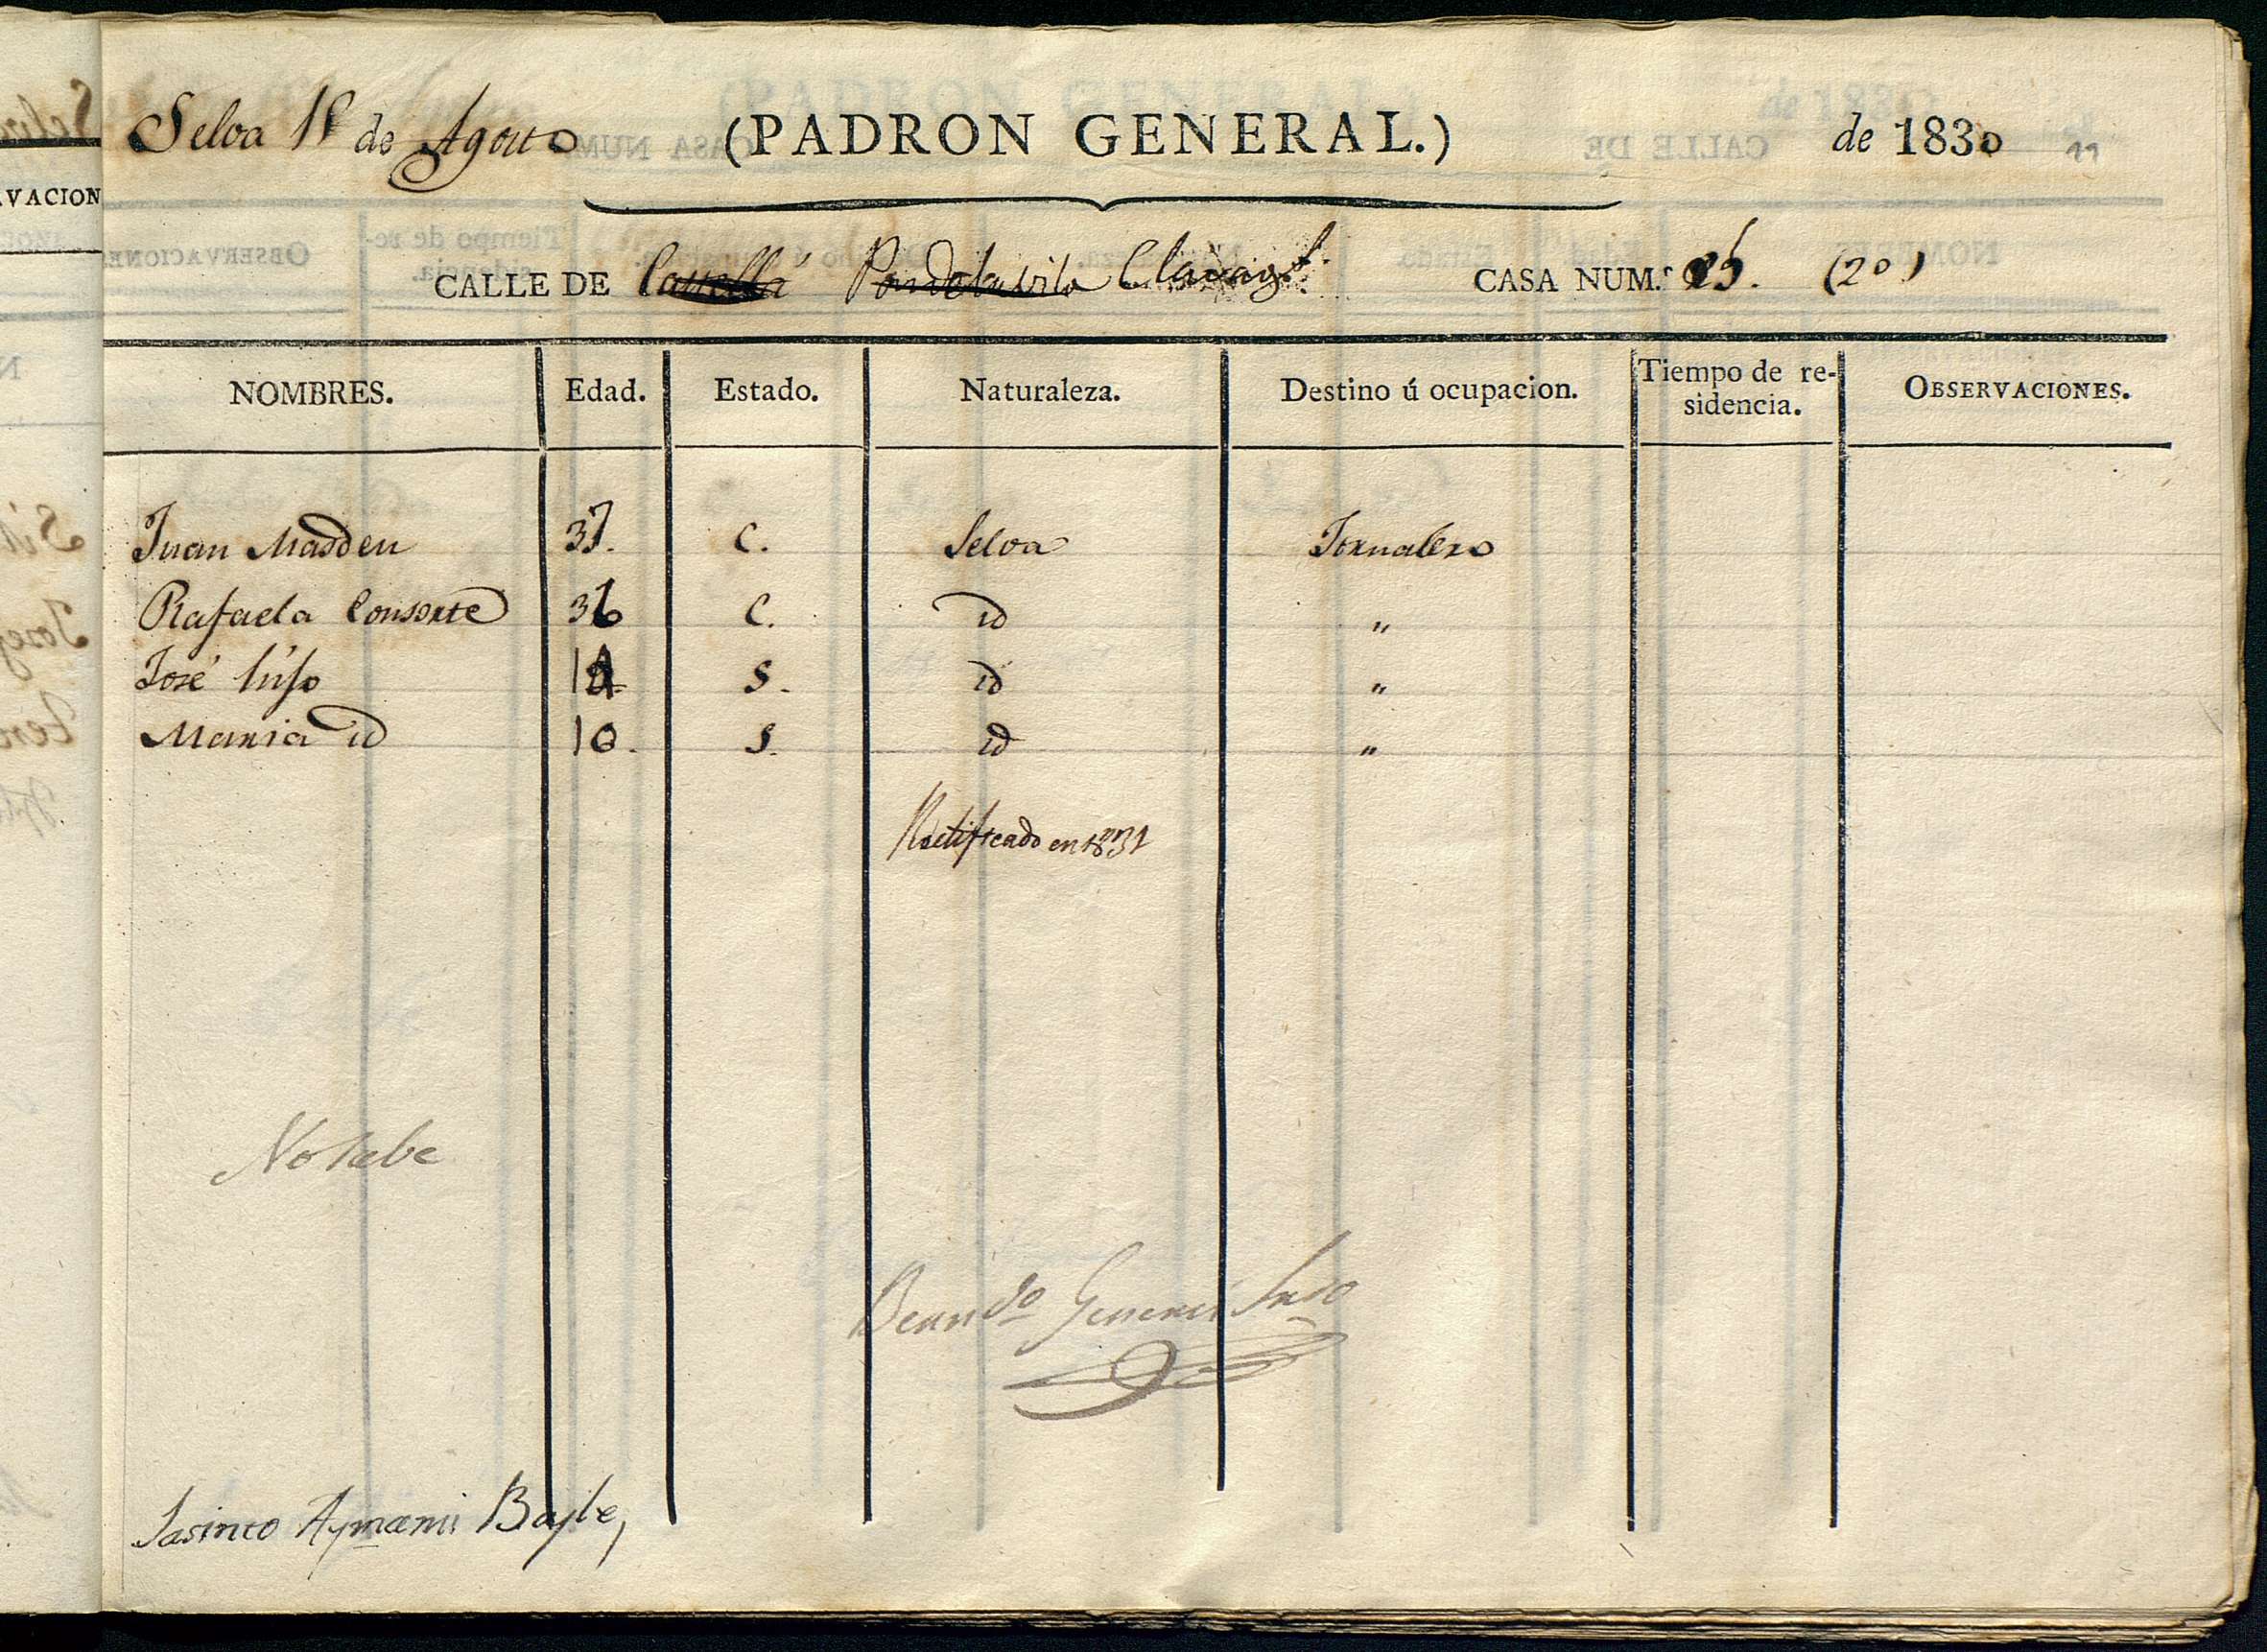 Selva 18 de Agosto (PADRON GENERAL.) de 1830 11
CALLE DE Castellá CASA NUM.º 25. (2º)
NOMBRES. Edad. Estado. Naturaleza. Destino ú ocupacion. Tiempo de re-
sidencia. OBSERVACIONES.
Juan Masdeu 37. C. Selva Jornalero
Rafaela Consorte 36 C. id "
José hijo S. id "
Maria id 10. S. id "
Rectificado en 1831
No sabe
Jasinto Aymami Bayle,